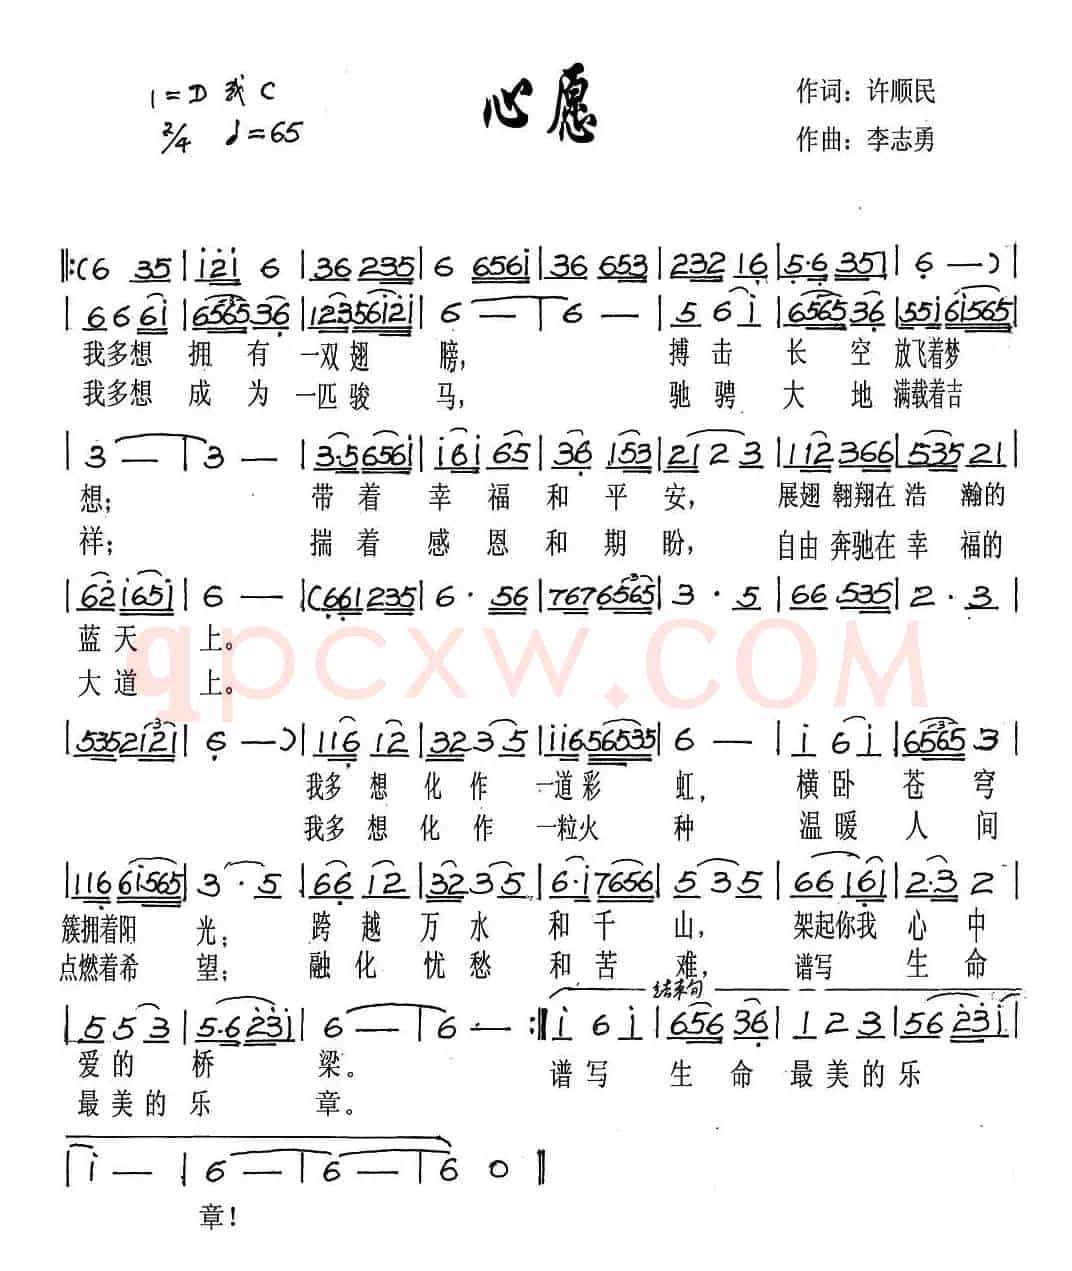 心愿
1=D 或 C
2/4 ♩=65
作词：许顺民
作曲：李志勇
‖:(6 35 | i2i 6 | 36 235 | 6 656i | 36 653 | 232 16 | 5·6 35 | 6 — ) |
| 6 6 6i | 6565 36 | 1235 6i2i | 6 — | 6 — | 5 6 i | 6565 36 | 55i 6i565 |
我多想 拥 有 一双翅 膀， 搏 击 长 空 放飞着梦
我多想 成 为 一匹骏 马， 驰 骋 大 地 满载着吉
| 3 — | 3 — | 3·5 656i | i6i 65 | 36 153 | 21 2 3 | 112 366 | 535 21 |
想； 带 着 幸 福 和 平 安， 展翅 翱翔在 浩 瀚的
祥； 揣 着 感 恩 和 期 盼， 自由 奔驰在 幸 福的
| 62 i65 | 6 — | (661 235 | 6 · 56 | 7676565 | 3 · 5 | 66 535 | 2 · 3 |
蓝 天 上。
大 道 上。
qpcxw.COM
| 5352 121 | 6 — ) | 116 12 | 32 3 5 | ii6 56535 | 6 — | i 6 i | 6565 3 |
我多 想 化 作 一道彩 虹， 横 卧 苍 穹
我多 想 化 作 一粒火 种 温 暖 人 间
| 116 6i565 | 3 · 5 | 66 12 | 32 3 5 | 6·i 7656 | 5 3 5 | 66 161 | 2·3 2 |
簇拥着阳 光； 跨 越 万 水 和 千 山， 架起你我 心 中
点燃着希 望； 融 化 忧 愁 和 苦 难， 谱写 生 命
结束句
| 5 5 3 | 5·6 23i | 6 — | 6 — :‖ i 6 i | 656 36 | 1 2 3 | 56 23i |
爱 的 桥 梁。 谱 写 生 命 最 美 的 乐
最 美 的 乐 章。
| i — | 6 — | 6 — | 6 0 ‖
章！